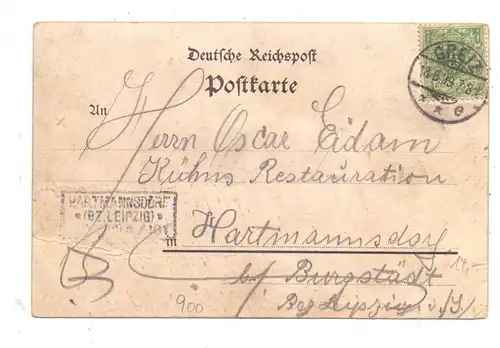 Deutsche Reichspost
Postkarte
GREIZ
An
Herrn Oscar Eidam
Kühns Restauration
HARTMANNSDORF
(BZ. LEIPZIG)
in Hartmannsdorf
14,-
b/ Burgstädt
Bez Leipzig i./S.
900